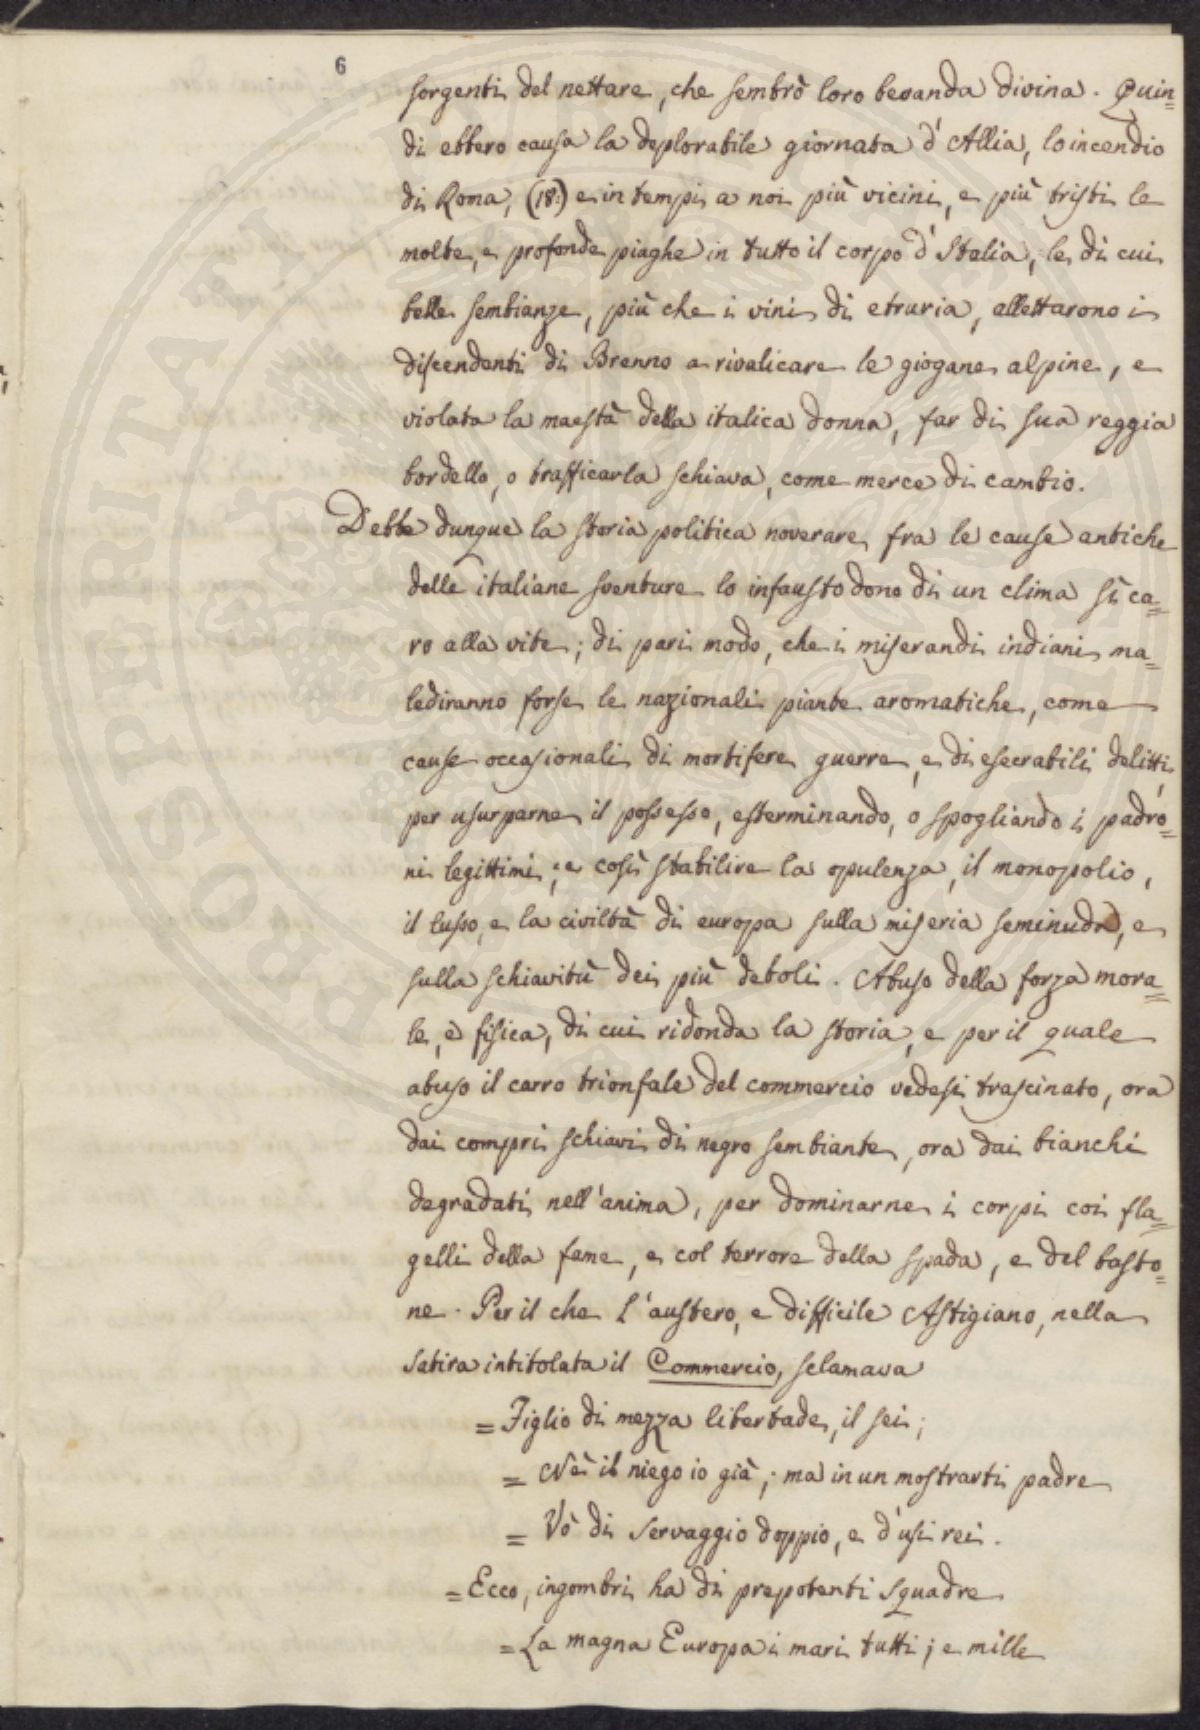 6
sorgenti del nettare, che sembrò loro bevanda divina. Quin=
di ebbero causa la deplorabile giornata d'Allia, lo incendio
di Roma, (18:) e in tempi a noi più vicini, e più tristi le
molte, e profonde piaghe in tutto il corpo d'Italia, le di cui
belle sembianze, più che i vini di etruria, allettarono i
discendenti di Brenno a rivalicare le giogane alpine, e
violata la maestà della italica donna, far di sua reggia
bordello, o trafficarla schiava, come merce di cambio.
Debbe dunque la storia politica noverare, fra le cause antiche
delle italiane sventure lo infausto dono di un clima sì ca=
ro alla vite; di pari modo, che i miserandi indiani ma=
lediranno forse le nazionali piante aromatiche, come
cause occasionali di mortifere guerre, e di esecrabili delitti,
per usurparne il possesso, esterminando, o spogliando i padro=
ni legittimi; e così stabilire la opulenza, il monopolio,
il lusso, e la civiltà di europa sulla miseria seminuda, e
sulla schiavitù dei più deboli. Abuso della forza mora=
le, e fisica, di cui ridonda la storia, e per il quale
abuso il carro trionfale del commercio vedesi trascinato, ora
dai compri schiavi di negro sembiante, ora dai bianchi
degradati nell'anima, per dominarne i corpi coi fla=
gelli della fame, e col terrore della spada, e del basto=
ne. Per il che l'austero, e difficile Astigiano, nella
satira intitolata il Commercio, sclamava
= Figlio di mezza libertade, il sei;
= Nè il niego io già; ma in un mostrarti padre
= Vò di servaggio doppio, e d'usi rei.
= Ecco, ingombri ha di prepotenti squadre
= La magna Europa i mari tutti; e mille
PROSPERITATI